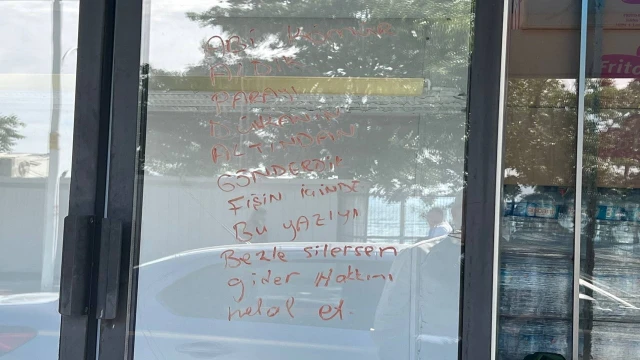 ABİ
PARANI
DÜKKANIN
ALTINDAN
GÖNDERDİK
FİŞİN İÇİNDE
BU YAZIYI
Bezle silersen
gider Hakkını
helal et.
Frito